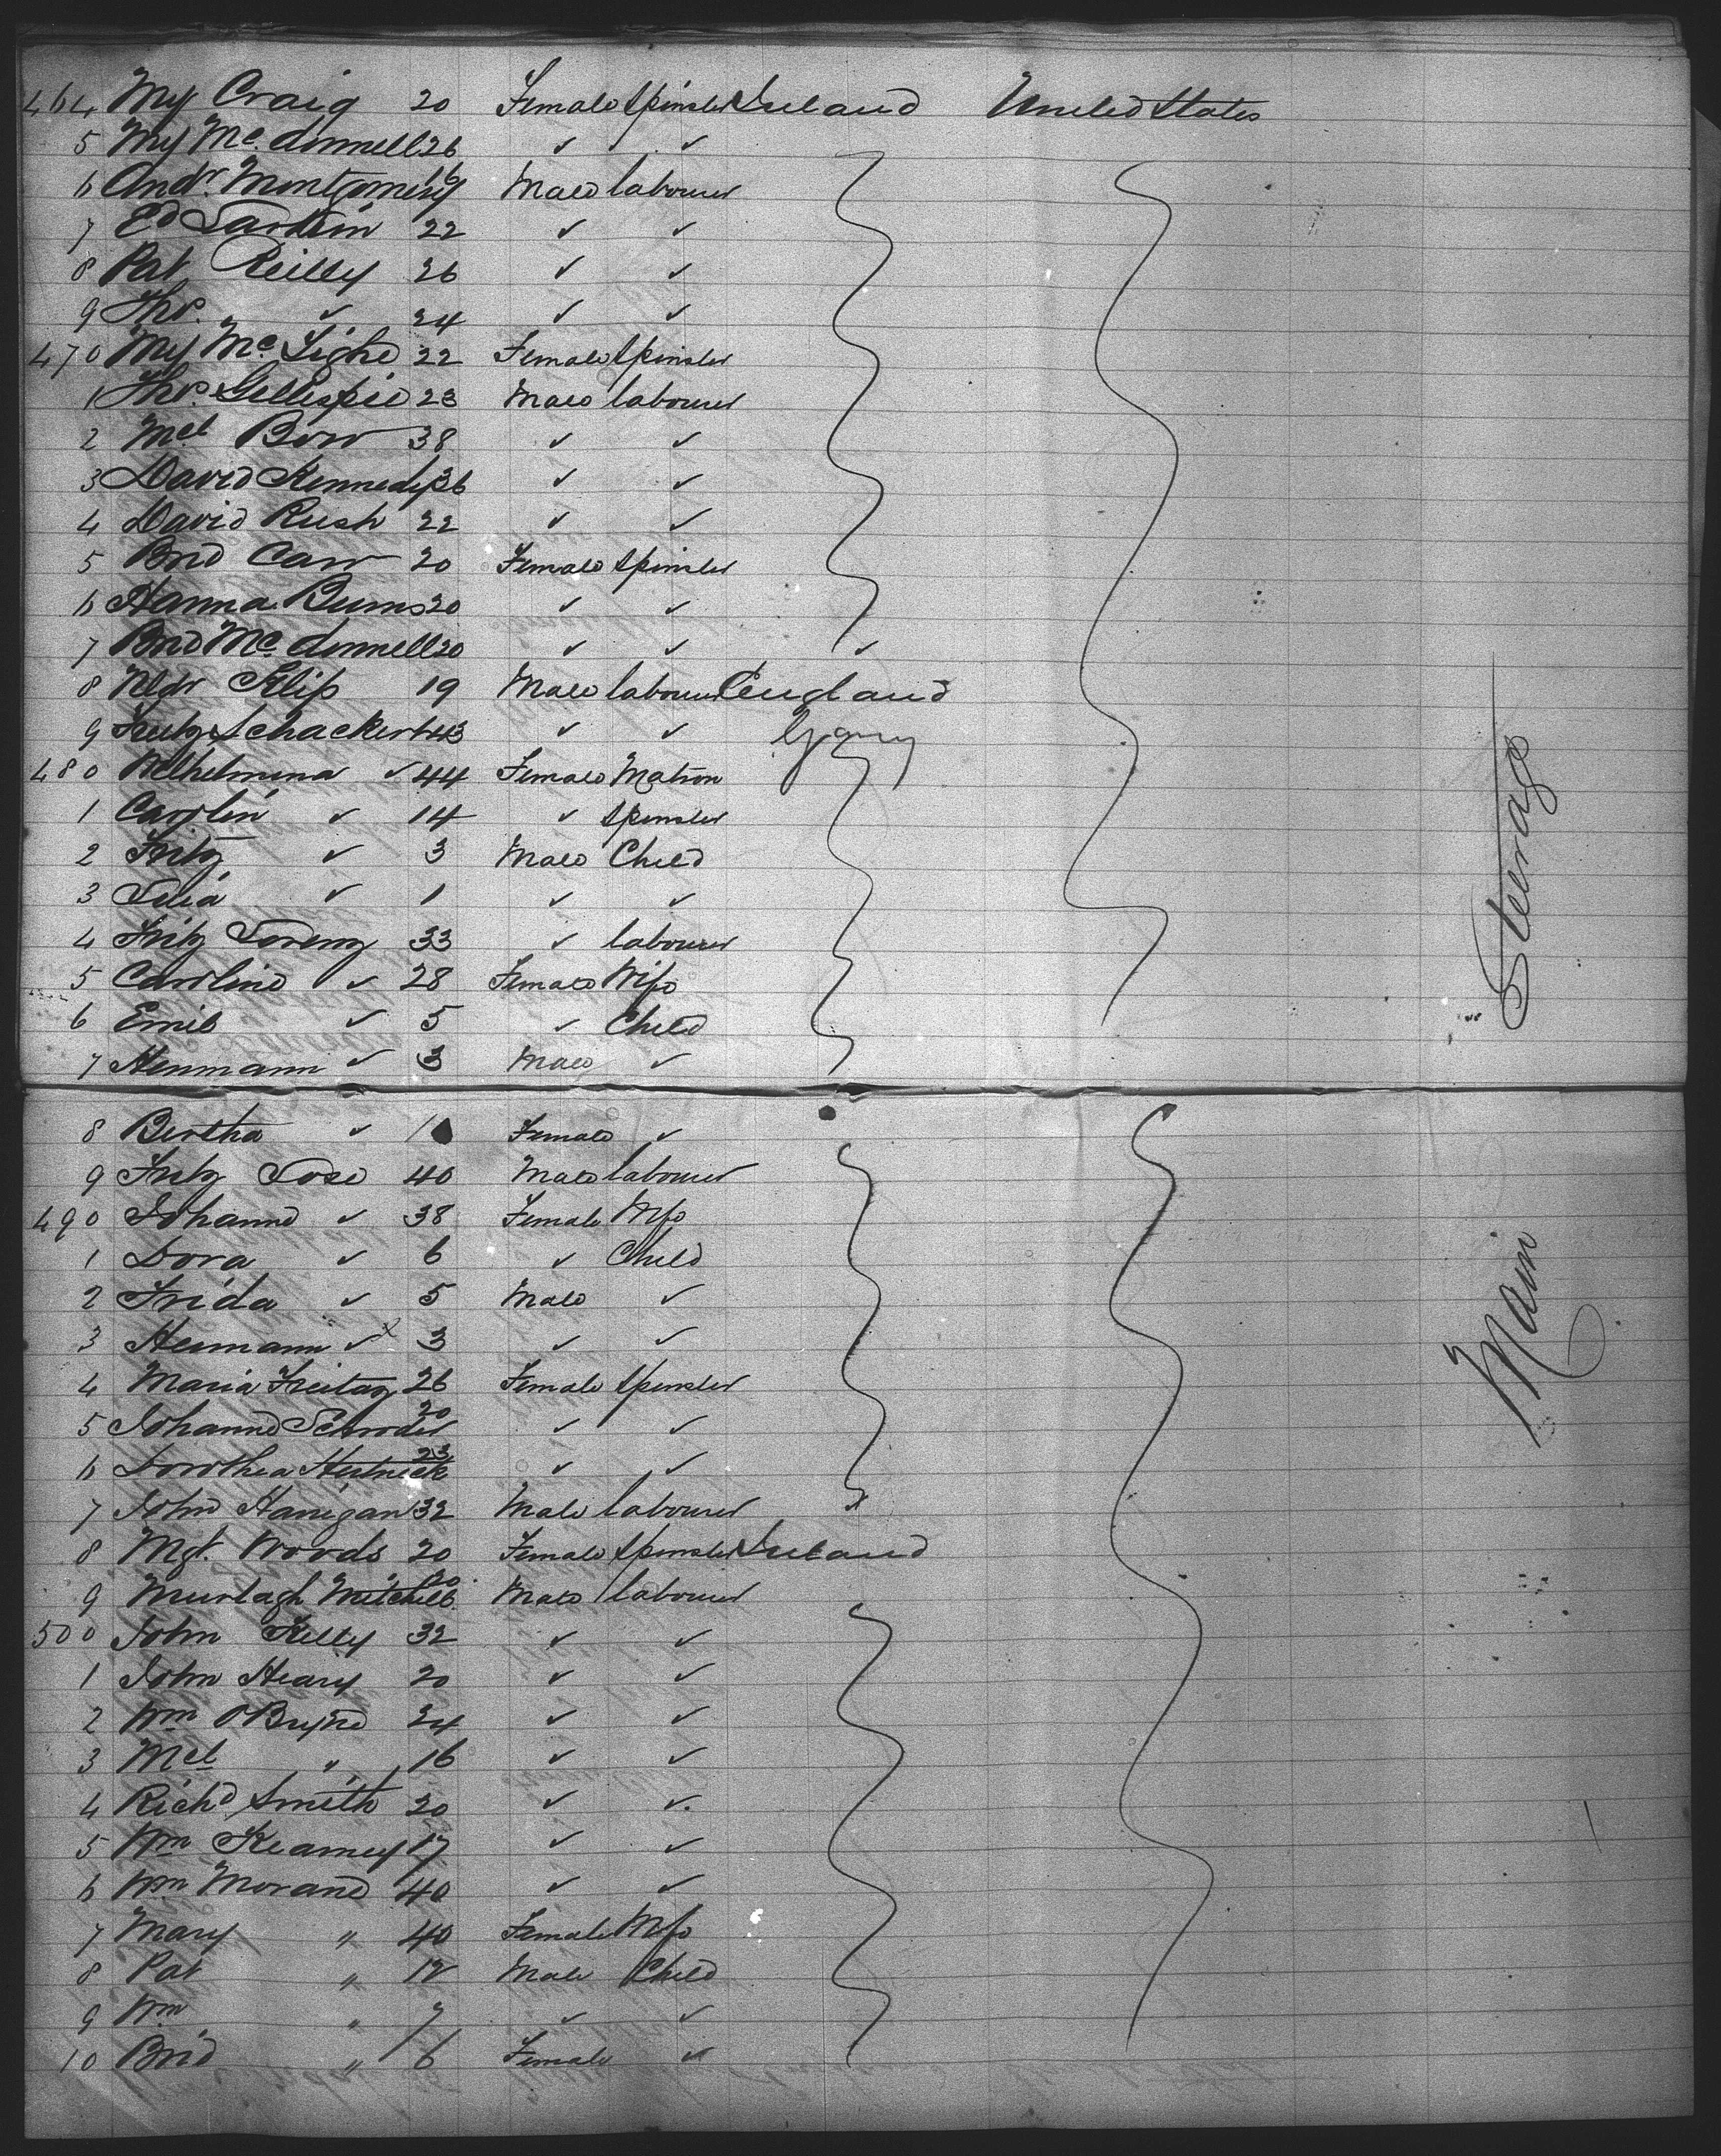 464 My Craig 20 Female Spinster Ireland United States
5 My Mc.donnell 26 ✓ ✓
6 Andr. Montgomery 16 Male labourer
7 Ed Larkin 22 ✓ ✓
8 Pat Reilly 26 ✓ ✓
9 Tho. ✓ 24 ✓ ✓
470 My Mc Tighe 22 Female Spinster
1 Tho. Gillespie 23 Male labourer
2 Mcl 38 ✓ ✓
3 David Kennedy 36 ✓ ✓
4 David Rush 22 ✓ ✓
5 Brid Carr 20 Female Spinster
6 Hanna Burns 20 ✓ ✓
7 Brid Mc donnell 20 ✓ ✓ ✓
8 19 Male labourer England
9 Fritz Schackert 43 ✓ ✓ Gmany
480 Wilhelmina ✓ 44 Female Matron
1 Carolin ✓ 14 ✓ Spinster
2 Fritz ✓ 3 Male Child
3 ✓ 1 ✓ ✓
4 Fritz Lorenz 33 ✓ labourer
5 Caroline ✓ 28 Female Wife
6 Emil ✓ 5 ✓ Child
7 Hermann ✓ 3 Male ✓
Steerage
8 Bertha ✓ 1 Female ✓
9 Fritz Lose 40 Male labourer
490 Johanne ✓ 38 Female Wife
1 Dora ✓ 6 ✓ Child
2 Frida ✓ 5 Male ✓
3 Hermann ✓ 3 ✓ ✓
4 Maria Freitag 26 Female Spinster
5 Johanne Schroder 20 ✓ ✓
6 Dorothea 23 ✓ ✓
7 John Hanigan 32 Male labourer
8 Mgt. Woods 20 Female Spinster Ireland
9 Murtagh Mitchell 20 Male labourer
500 John Kelly 32 ✓ ✓
1 John Heary 20 ✓ ✓
2 Wm O'Bryne 24 ✓ ✓
3 Mcl " 16 ✓ ✓
4 Richd Smith 20 ✓ ✓
5 Wm Kearney 17 ✓ ✓
6 Wm Morane 40 ✓ ✓
7 Mary " 40 Female Wife
8 Pat " 12 Male Child
9 Wm " 7 ✓ ✓
10 Brid " 6 Female ✓
Main